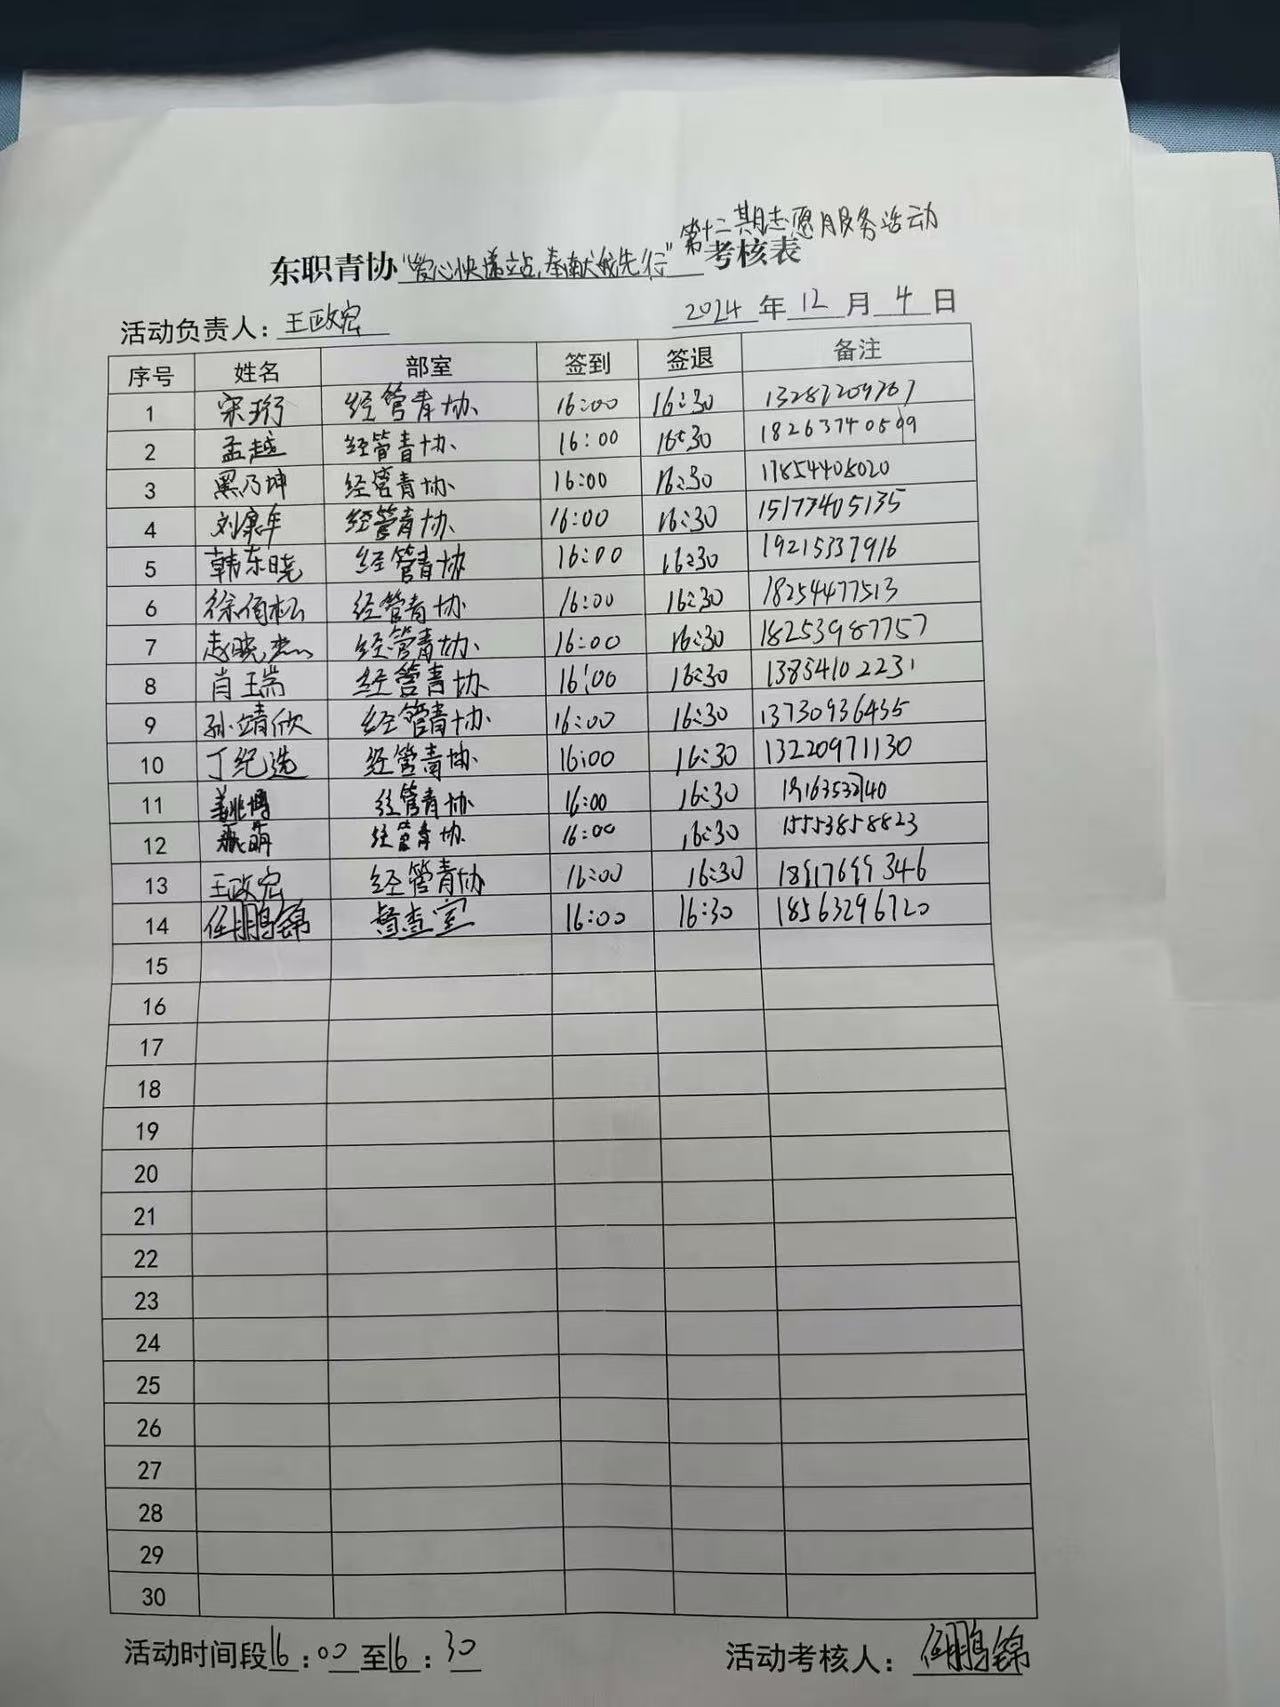 第十二期志愿服务活动
东职青协“爱心快递站,奉献我先行”考核表
活动负责人：王政宏 2024年12月4日
序号 姓名 部室 签到 签退 备注
1 宋珩 经管青协 16:00 16:30 13287209767
2 孟越 经管青协 16:00 16:30 18263740599
3 黑乃坤 经管青协 16:00 16:30 17854408020
4 刘家年 经管青协 16:00 16:30 15173405135
5 韩东晓 经管青协 16:00 16:30 19215337916
6 徐佰松 经管青协 16:00 16:30 18254477513
7 赵晓杰 经管青协 16:00 16:30 18253987757
8 肖瑞 经管青协 16:00 16:30 13854102231
9 孙靖欣 经管青协 16:00 16:30 13730936435
10 丁纪选 经管青协 16:00 16:30 13220971130
11 姜兆博 经管青协 16:00 16:30
12 经管青协 16:00 16:30 15553858823
13 王政宏 经管青协 16:00 16:30 18917699346
14 任鹏锦 督查室 16:00 16:30 18563296720
15
16
17
18
19
20
21
22
23
24
25
26
27
28
29
30
活动时间段16:00至16:30 活动考核人：任鹏锦